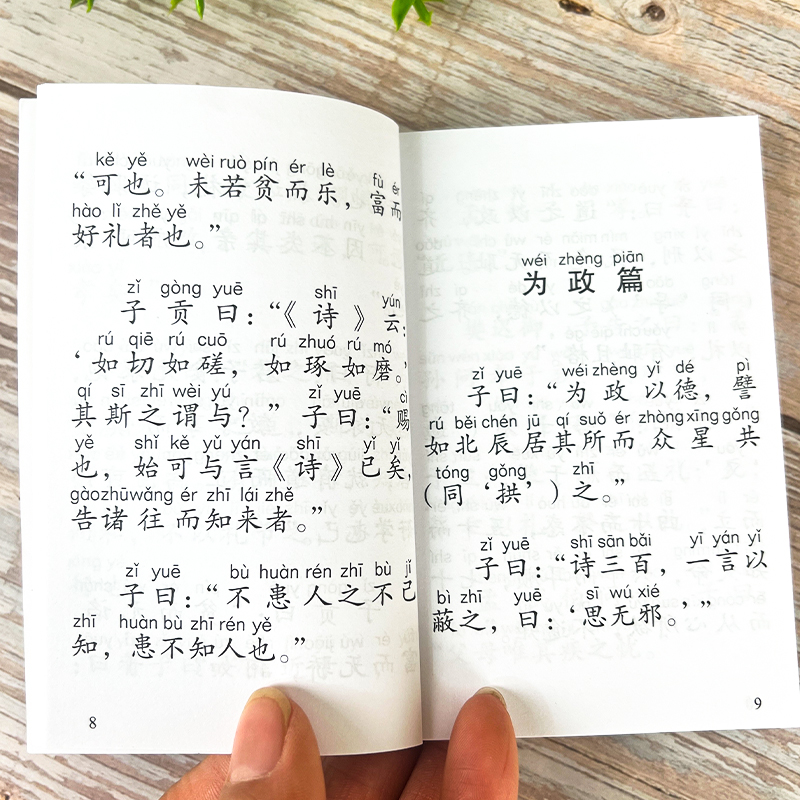 kě yě wèi ruò pín ér lè fù ér
“可也。未若贫而乐，富而
hào lǐ zhě yě
好礼者也。”
zǐ gòng yuē shī yún
子贡曰：“《诗》云：
rú qiē rú cuō rú zhuó rú mó
‘如切如磋，如琢如磨。
qí sī zhī wèi yú zǐ yuē cì
其斯之谓与？” 子曰：“赐
yě shǐ kě yǔ yán shī yǐ yǐ
也，始可与言《诗》已矣，
gàozhūwǎng ér zhī lái zhě
告诸往而知来者。”
zǐ yuē bù huàn rén zhī bù jǐ
子曰：“不患人之不己
zhī huàn bù zhī rén yě
知，患不知人也。”
8
wéi zhèng piān
为政篇
zǐ yuē wéi zhèng yǐ dé pì
子曰：“为政以德，譬
rú běi chén jū qí suǒ ér zhòng xīng gǒng
如北辰居其所而众星共
tóng gǒng zhī
（同‘拱’）之。”
zǐ yuē shī sān bǎi yī yán yǐ
子曰：“诗三百，一言以
bì zhī yuē sī wú xié
蔽之，曰：‘思无邪。’”
9